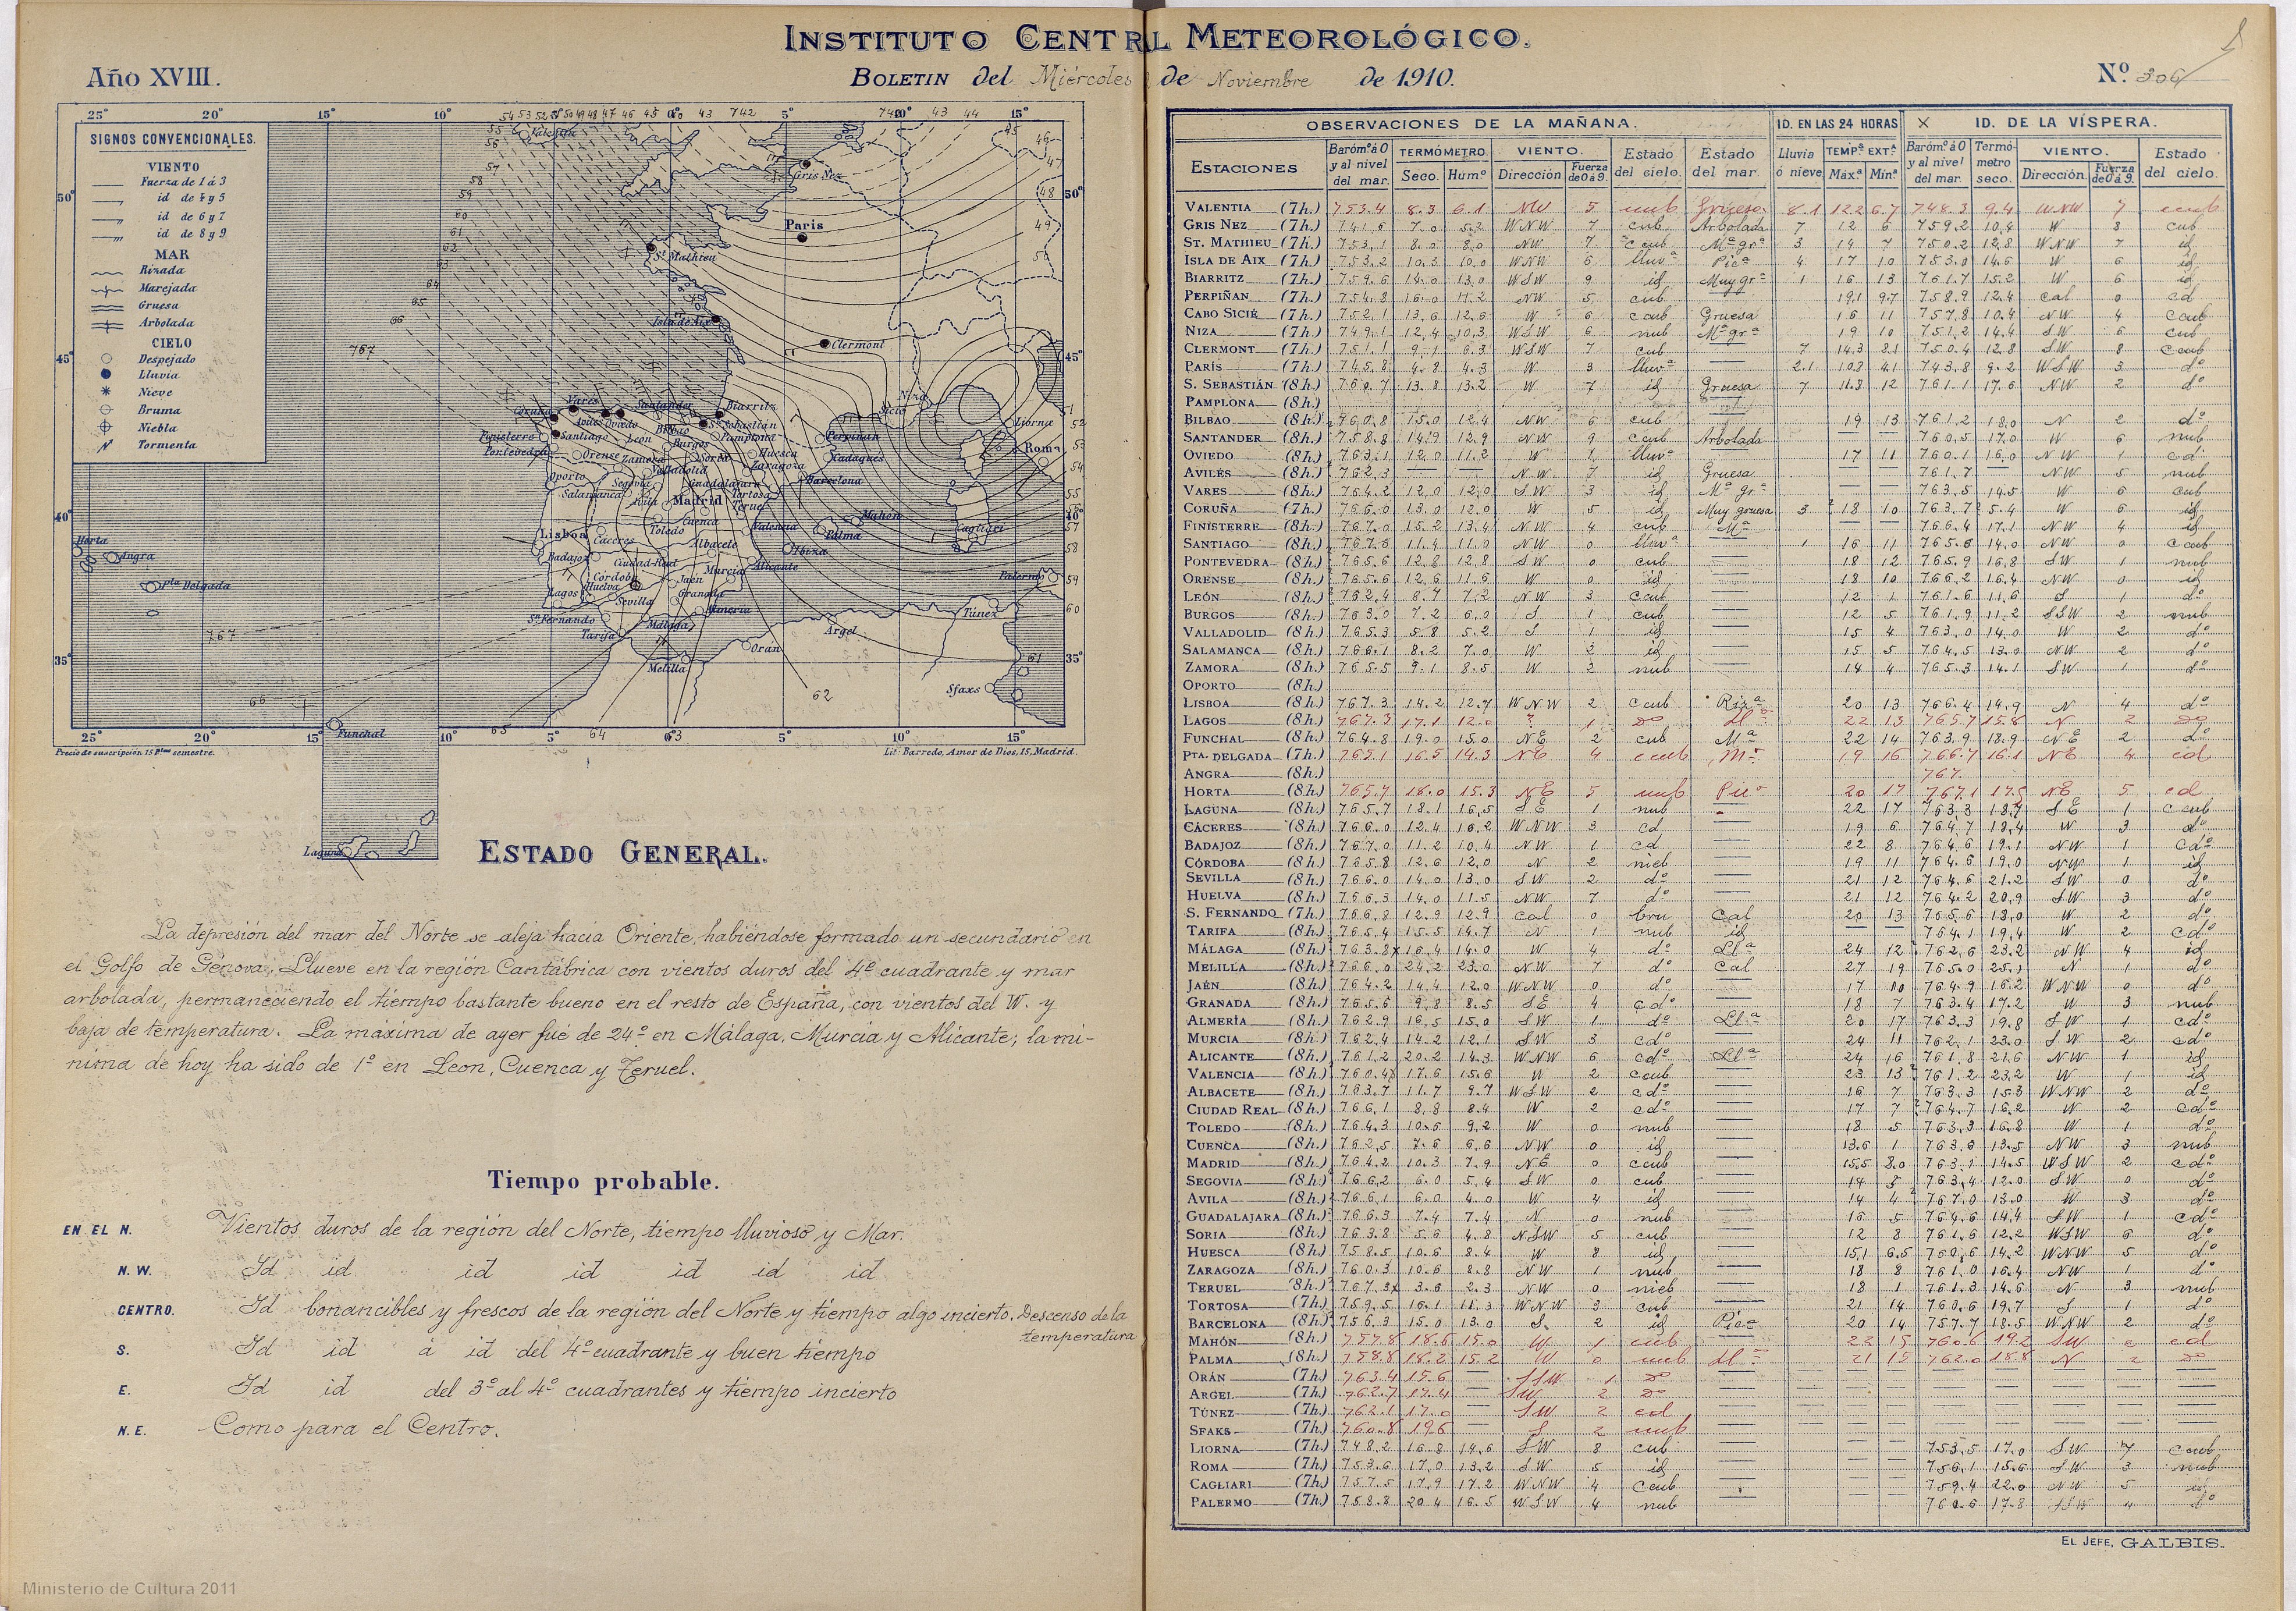 INSTITUTO CENTRAL METEOROLÓGICO.
Año XVIII.
BOLETIN del Miércoles de Noviembre de 1910.
Nº 306
SIGNOS CONVENCIONALES.
VIENTO
Fuerza de 1 á 3
id de 4 y 5
id de 6 y 7
id de 8 y 9
MAR
Rizada
Marejada
Gruesa
Arbolada
CIELO
Despejado
Lluvia
Nieve
Bruma
Niebla
Tormenta
Gris Nez
Paris
St Mathieu
Isla de Aix
Clermont
Biarritz
Niza
Liorna
Roma
Perpiñan
Cadaqués
Barcelona
Madrid
Lisboa
Mahón
Palma
Ibiza
Cagliari
Palermo
Túnez
Argel
Orán
Melilla
Sfaxs
Horta
Angra
Pta Delgada
Funchal
Laguna
Precio de suscripción 15 Ptas semestre.
Lit. Barredo, Amor de Dios, 15, Madrid.
ESTADO GENERAL.
La depresión del mar del Norte se aleja hacia Oriente, habiéndose formado un secundario en
el Golfo de Génova. Llueve en la región Cantábrica con vientos duros del 4º cuadrante y mar
arbolada, permaneciendo el tiempo bastante bueno en el resto de España, con vientos del W. y
baja de temperatura. La máxima de ayer fué de 24º en Málaga, Murcia y Alicante; la mí-
nima de hoy ha sido de 1º en Leon, Cuenca y Teruel.
Tiempo probable.
EN EL N. Vientos duros de la región del Norte, tiempo lluvioso y Mar.
N. W. Id id id id id id id
CENTRO. Id bonancibles y frescos de la región del Norte y tiempo algo incierto. Descenso de la
temperatura
S. Id id á id del 4º cuadrante y buen tiempo
E. Id id del 3º al 4º cuadrantes y tiempo incierto
N. E. Como para el Centro.
OBSERVACIONES DE LA MAÑANA.
ID. EN LAS 24 HORAS
ID. DE LA VÍSPERA.
ESTACIONES
Baróm.º á 0 y al nivel del mar.
TERMÓMETRO. Seco. Humº
VIENTO. Dirección Fuerza de 0 á 9.
Estado del cielo.
Estado del mar.
Lluvia ó nieve
TEMPª EXTª Máxª Mínª
Baróm.º á 0 y al nivel del mar.
Termómetro seco.
VIENTO. Dirección. Fuerza de 0 á 9.
Estado del cielo.
VALENTIA (7h.) 753.4 8.3 6.1 NW 5 nub Gruesa 8.1 12.2 6.7 748.3 9.4 WNW 7 nub
GRIS NEZ (7h.) 741.6 7.0 5.2 WNW 7 cub Arbolada 7 12 6 759.2 10.4 W 8 cub
ST. MATHIEU (7h.) 753.1 8.0 8.0 NW 7 c cub Mª grª 3 14 7 750.2 12.8 WNW 7 id
ISLA DE AIX (7h.) 753.2 10.3 10.0 WNW 6 lluvª Picª 4 17 10 753.0 14.6 W 6 id
BIARRITZ (7h.) 759.6 14.0 13.0 WSW 9 id Muy grª 1 16 13 761.7 15.2 W 6 id
PERPIÑAN (7h.) 754.8 16.0 11.2 NW 5 cub 19.1 9.7 758.9 12.4 Cal 0 cd
CABO SICIÉ (7h.) 752.1 13.6 12.6 W 6 c cub Gruesa 16 11 757.8 10.4 NW 4 c cub
NIZA (7h.) 749.1 12.4 10.3 WSW 6 nub Mª grª 19 10 751.2 14.4 SW 6 cub
CLERMONT (7h.) 751.1 9.1 6.3 WSW 7 cub 7 14.3 8.1 750.4 12.8 SW 8 c cub
PARÍS (7h.) 745.8 4.8 4.3 W 3 lluvª 2.1 10.8 4.1 743.8 9.2 WSW 3 dº
S. SEBASTIÁN (8h.) 760.7 13.8 13.2 W 7 id Gruesa 7 12 761.1 17.6 NW 2 dº
PAMPLONA (8h.)
BILBAO (8h.) 760.8 15.0 12.4 NW 6 cub 19 13 761.2 18.0 N 2 dº
SANTANDER (8h.) 758.8 14.9 12.9 NW 9 c cub Arbolada 760.5 17.0 W 6 nub
OVIEDO (8h.) 763.1 12.0 11.2 W lluvª 17 11 760.1 16.0 NW 1 cd
AVILÉS (8h.) 762.3 NW 7 id Gruesa 761.7 NW 5 nub
VARES (8h.) 764.2 12.0 12.0 SW 3 id Mª grª 763.5 14.5 W 6 cub
CORUÑA (7h.) 766.0 13.0 12.0 W 5 id Muy gruesa 3 18 10 763.7 W 6 id
FINISTERRE (8h.) 767.0 15.2 13.4 NW 4 cub Mª 766.4 17.1 NW 4 id
SANTIAGO (8h.) 767.8 11.4 11.0 NW 0 lluvª 1 16 11 765.6 14.0 NW 0 c cub
PONTEVEDRA (8h.) 765.6 12.8 12.8 SW 0 cub 18 12 765.9 16.8 SW 1 nub
ORENSE (8h.) 765.6 12.6 11.6 W 0 id 18 10 766.2 16.4 NW 0 id
LEÓN (8h.) 762.4 8.7 7.2 NW 3 c cub 12 1 761.6 11.6 S 1 dº
BURGOS (8h.) 763.0 7.2 6.0 S 1 cub 12 5 761.9 11.2 SSW 2 nub
VALLADOLID (8h.) 765.3 5.8 5.2 S 1 id 15 4 763.0 14.0 W 2 dº
SALAMANCA (8h.) 766.1 8.2 7.0 W 2 id 15 5 764.5 13.0 NW 2 dº
ZAMORA (8h.) 765.5 9.1 8.5 W 2 nub 14 4 765.3 14.1 SW 1 dº
OPORTO (8h.)
LISBOA (8h.) 767.3 14.2 12.7 WNW 2 c cub Rizª 20 13 766.4 14.9 N 4 dº
LAGOS (8h.) 767.3 17.1 12.0 ? 1 dº Llª 22 13 765.7 15.8 N 2 dº
FUNCHAL (8h.) 764.8 19.0 15.0 NE 2 cub Mª 22 14 763.9 18.9 NE 2 dº
PTA. DELGADA (7h.) 765.1 16.5 14.3 NE 4 c cub Mª 19 16 766.7 16.1 NE 4 cd
ANGRA (8h.) 767.
HORTA (8h.) 765.7 18.0 15.3 NE 5 nub 20 17 767.1 17.5 NE 5 cd
LAGUNA (8h.) 765.7 18.1 16.5 SE 1 nub 22 17 763.3 18.7 SE 1 c cub
CÁCERES (8h.) 766.0 12.4 16.2 WNW 3 cd 19 6 764.7 18.4 W 3 dº
BADAJOZ (8h.) 767.0 11.2 10.4 NW 1 cd 22 8 764.6 19.1 NW 1 cdº
CÓRDOBA (8h.) 765.8 12.6 12.0 N 2 nieb 19 11 764.6 19.0 NW 1 id
SEVILLA (8h.) 766.0 14.0 13.0 SW 2 dº 21 12 764.6 21.2 SW 0 dº
HUELVA (8h.) 766.3 14.0 11.5 NW 7 dº 21 12 764.2 20.9 SW 3 dº
S. FERNANDO (7h.) 766.8 12.9 12.9 Cal 0 bru Cal 20 13 765.6 18.0 W 2 dº
TARIFA (8h.) 765.4 15.5 14.7 N 1 nub id 764.1 19.4 W 2 cdº
MÁLAGA (8h.) 763.8x 16.4 14.0 W 4 dº Llª 24 12 762.6 23.2 NW 4 id
MELILLA (8h.) 766.0 24.2 23.0 NW 7 dº Cal 27 19 765.0 25.1 N 1 dº
JAÉN (8h.) 764.2 14.4 12.0 WNW 0 dº 17 10 764.9 16.2 WNW 0 dº
GRANADA (8h.) 765.6 9.8 8.5 SE 4 cdº 18 7 763.4 17.2 W 3 nub
ALMERÍA (8h.) 762.9 16.5 15.0 SW 1 dº Llª 20 17 763.3 19.8 SW 1 cdº
MURCIA (8h.) 762.4 14.2 12.1 SW 3 cdº 24 11 762.1 23.0 SW 2 cdº
ALICANTE (8h.) 761.2 20.2 14.3 WNW 6 cdº Llª 24 16 761.8 21.6 NW 1 id
VALENCIA (8h.) 760.4x 17.6 15.6 W 2 c cub 23 13 761.2 23.2 W 1 id
ALBACETE (8h.) 763.7 11.7 9.7 WSW 2 cdº 16 7 763.3 15.3 WNW 2 dº
CIUDAD REAL (8h.) 766.1 8.8 8.4 W 2 cdº 17 7 764.7 16.2 W 2 cdº
TOLEDO (8h.) 764.3 10.6 9.2 W 0 nub 18 5 763.3 16.8 W 1 dº
CUENCA (8h.) 762.5 7.6 6.6 NW 0 id 13.6 1 763.8 13.5 NW 3 nub
MADRID (8h.) 764.2 10.3 7.9 NE 0 c cub 15.5 8.0 763.1 14.5 WSW 2 cdº
SEGOVIA (8h.) 766.2 6.0 5.4 SW 0 cub 14 763.4 12.0 SW 0 dº
AVILA (8h.) 766.1 6.0 4.0 W 4 id 14 4 767.0 13.0 W 3 dº
GUADALAJARA (8h.) 766.3 7.4 7.4 N 0 nub 16 5 764.6 14.4 SW 1 cdº
SORIA (8h.) 763.8 5.6 4.8 NSW 5 cub 12 8 761.6 12.2 WSW 6 dº
HUESCA (8h.) 758.5 10.6 8.4 W 8 id 15.1 6.5 760.6 14.2 WNW 5 dº
ZARAGOZA (8h.) 760.3 10.6 8.8 NW 1 nub 18 8 761.0 16.4 NW 1 dº
TERUEL (8h.) 767.3x 3.6 2.3 NW 0 nieb 18 1 761.3 14.6 N 3 nub
TORTOSA (7h.) 759.5 16.1 11.3 WNW 3 cub 21 14 760.6 19.7 S 1 dº
BARCELONA (8h.) 756.3 15.0 13.0 S. 2 id Picª 20 14 757.7 18.5 WNW 2 dº
MAHÓN (8h.) 757.8 18.6 15.0 W 1 cub 22 15 760.6 19.2 SW 2 cd
PALMA (8h.) 758.8 18.2 15.2 W 0 nub Llª 21 15 762.0 18.8 N 2 dº
ORÁN (7h.) 763.4 15.6 SSW 1 dº
ARGEL (7h.) 762.7 17.4 SW 2 dº
TÚNEZ (7h.) 762.1 17.0 SW 2 cd
SFAKS (7h.) 760.8 19.6 S 2 nub
LIORNA (7h.) 748.2 16.8 14.6 SW 8 cub 753.5 17.0 SW 7 c cub
ROMA (7h.) 753.6 17.0 13.2 SW 5 id 756.1 15.6 SW 3 nub
CAGLIARI (7h.) 757.5 17.9 17.2 WNW 4 c cub 759.4 22.0 NW 5 id
PALERMO (7h.) 758.8 20.4 16.5 WSW 4 nub 760.6 17.8 SSW 4 dº
EL JEFE, GALBIS.
Ministerio de Cultura 2011